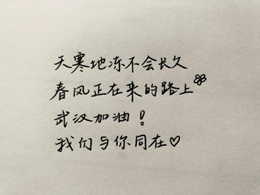 天寒地冻不会长久
春风正在来的路上
武汉加油！
我们与你同在♡